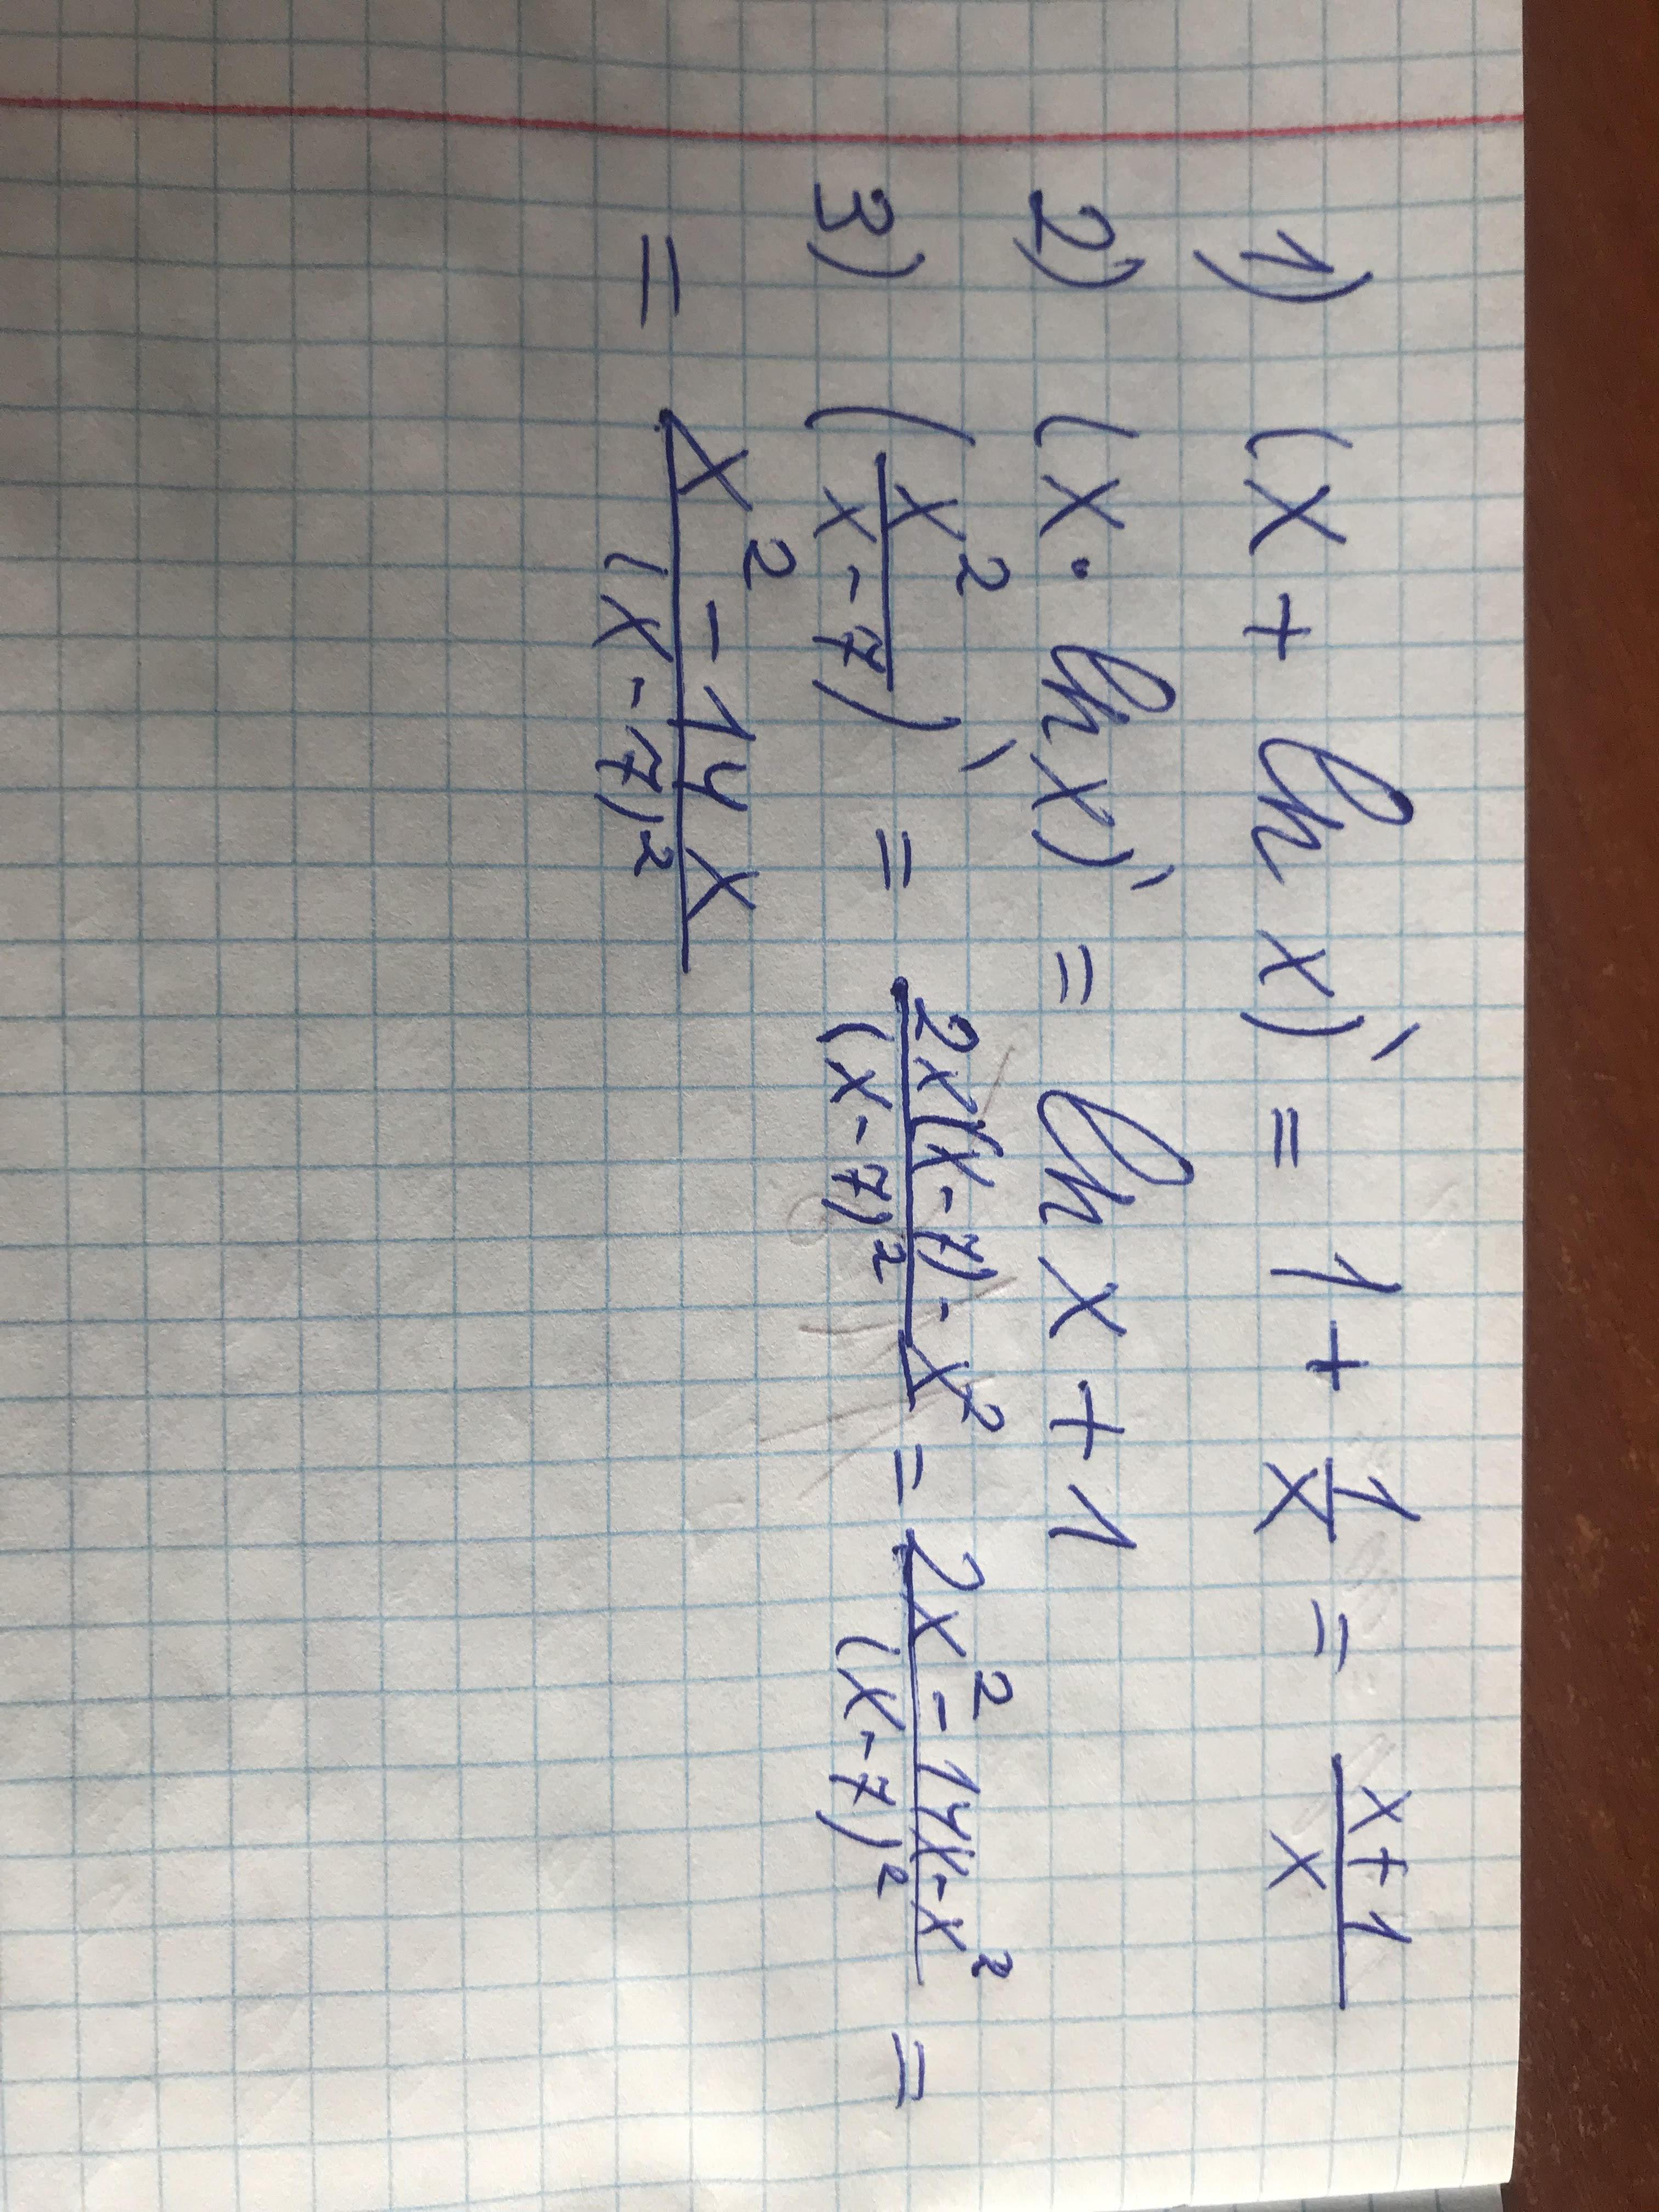 1) (x + ln x)` = 1 + 1/x = (x+1)/x
2) (x · ln x)` = ln x + 1
3) (x²/(x-7))` = (2x(x-7)-x²)/(x-7)² = (2x²-14x-x²)/(x-7)² =
= (x²-14x)/(x-7)²